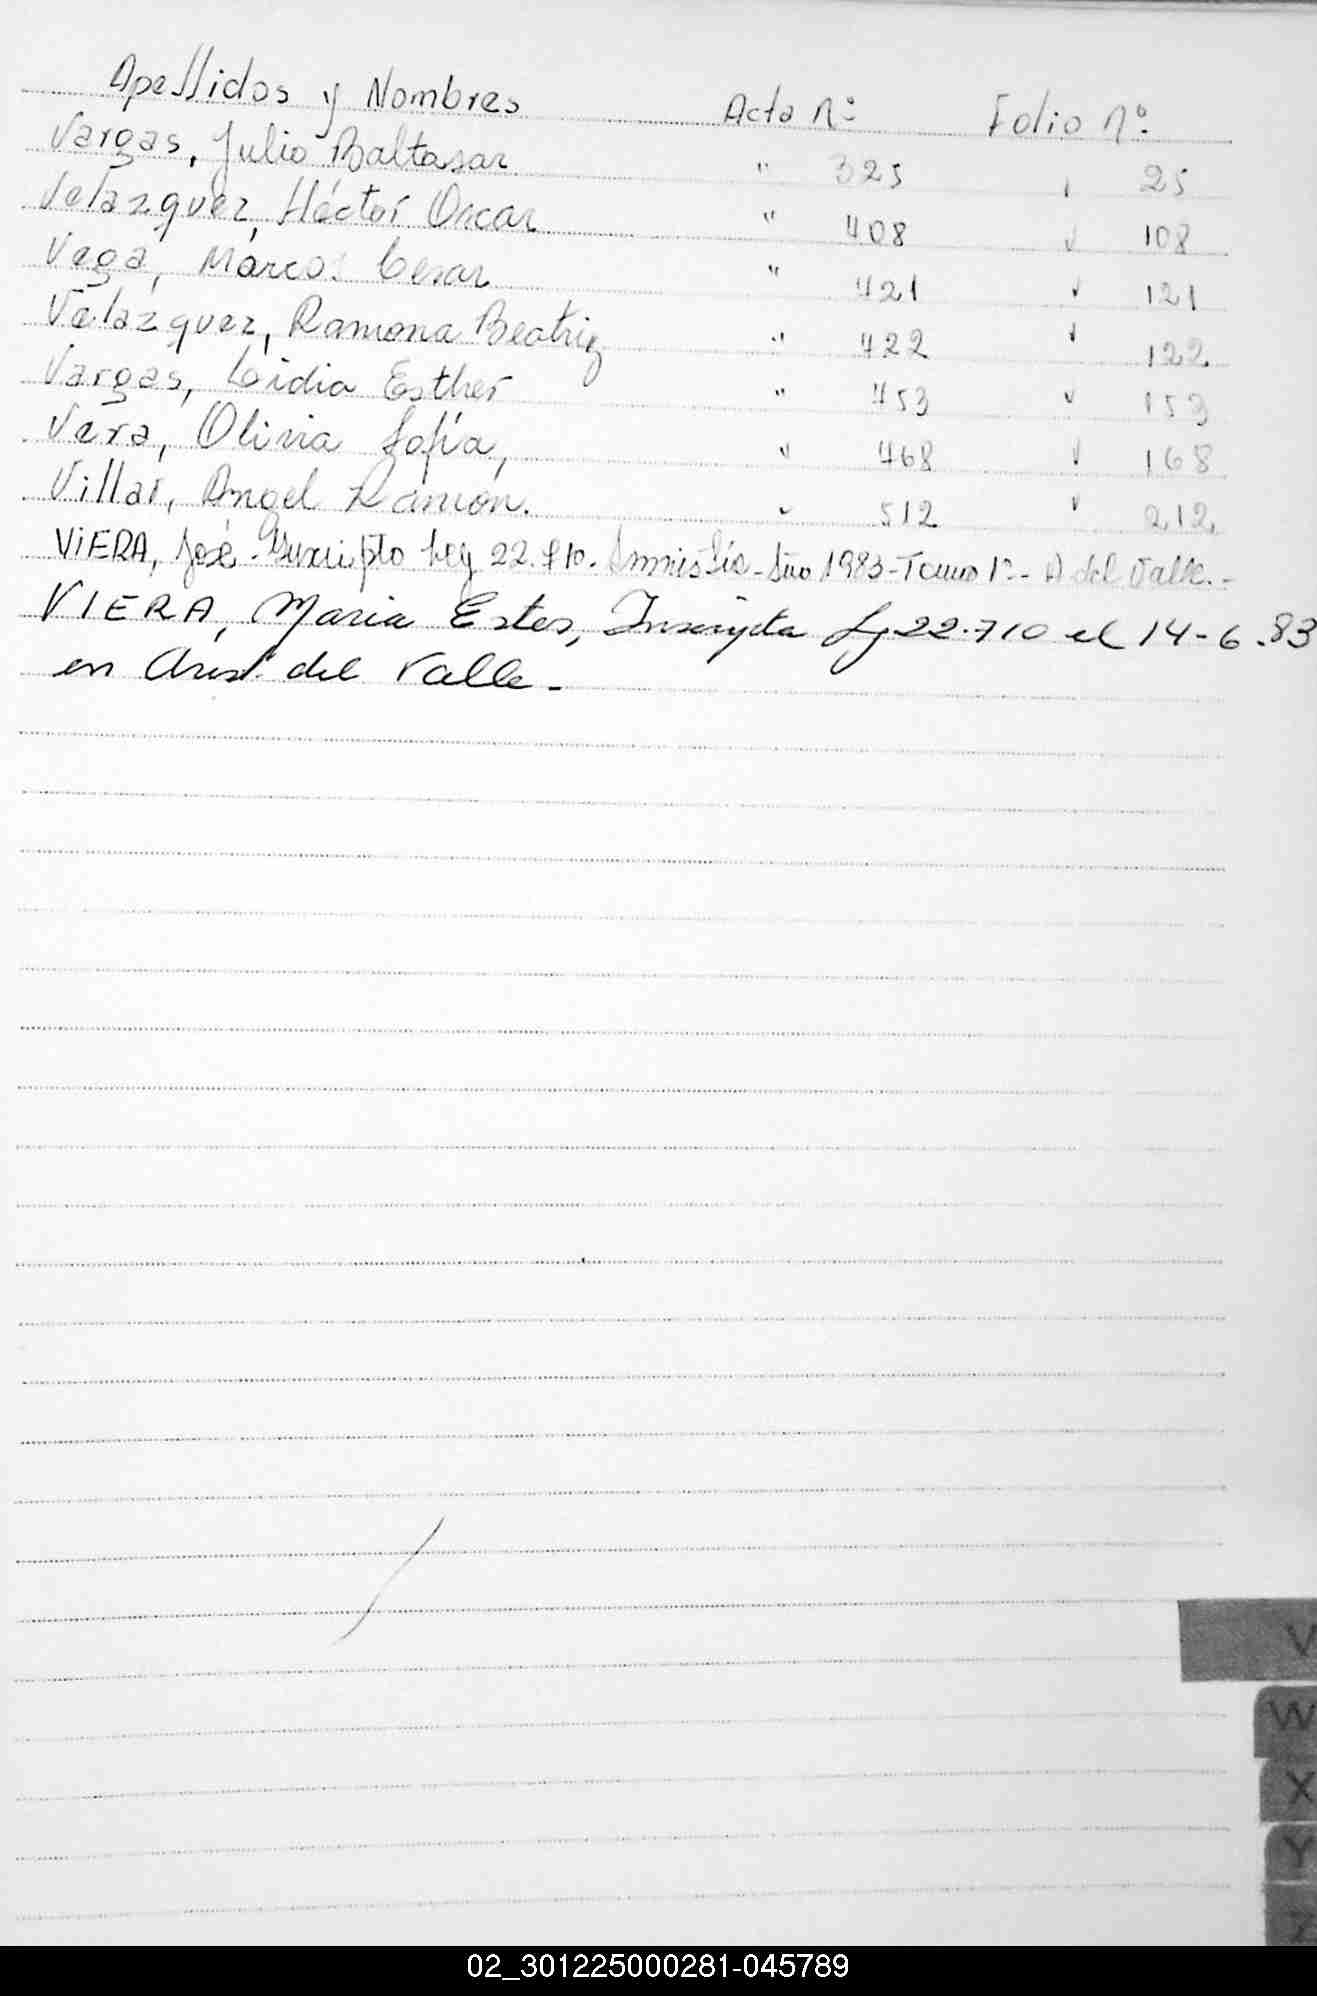 Apellidos y Nombres Acta Nº Folio Nº
Vargas, Julio Baltasar " 325 " 25
Velazquez, Héctor Oscar " 408 " 108
Vega, Marcos Cesar " 421 " 121
Velazquez, Ramona Beatriz " 422 " 122
Vargas, Lidia Esther " 453 " 153
Vera, Olivia Sofía, " 468 " 168
Villar, Angel Ramón. " 512 " 212
VIERA, José Inscripto Ley 22.710. Amnistía - Año 1983 - Tomo 1º - A del Valle. -
VIERA, Maria Ester, Inscripta Ly 22.710 el 14-6.83
en Arist. del Valle. -
V
W
X
Y
Z
02_301225000281-045789